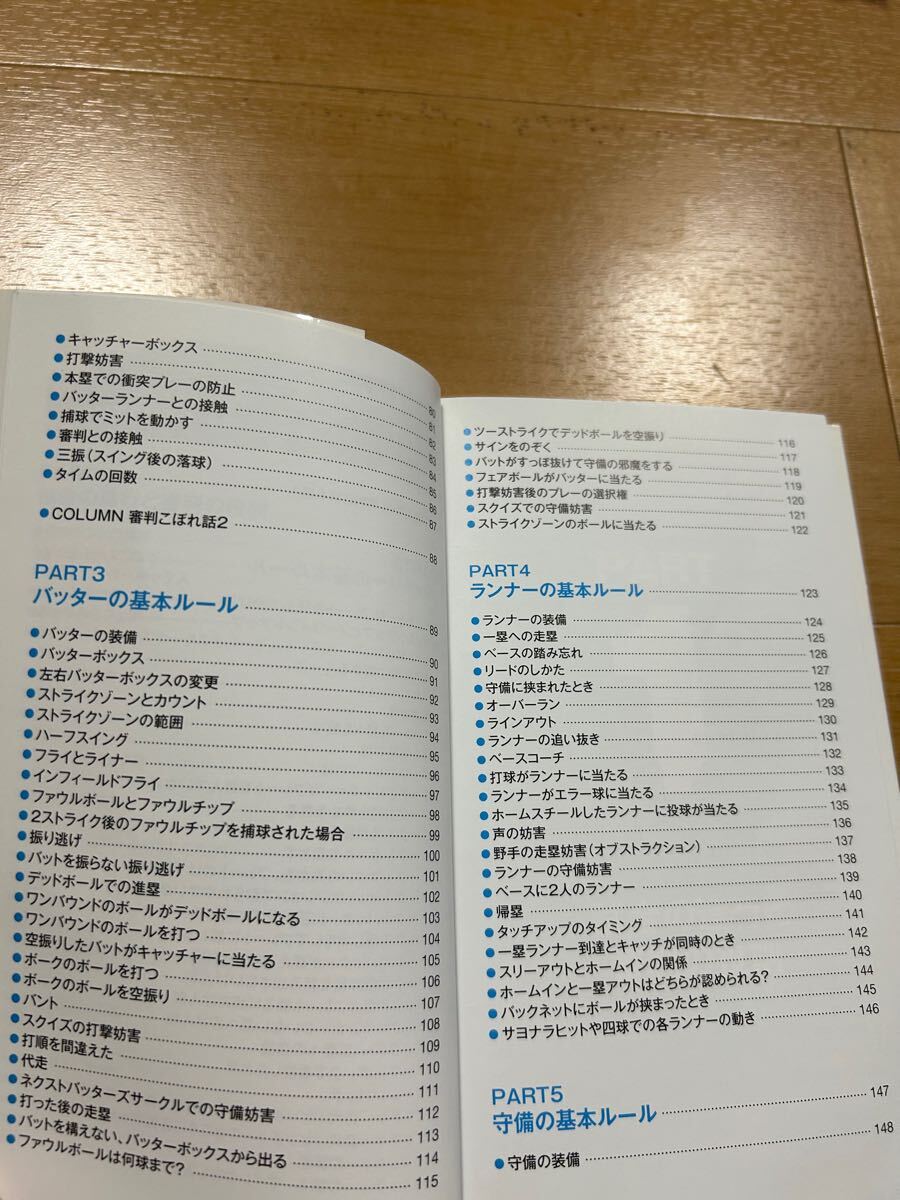 ●キャッチャーボックス……80
●打撃妨害……81
●本塁での衝突プレーの防止……82
●バッターランナーとの接触……83
●捕球でミットを動かす……84
●審判との接触……85
●三振（スイング後の落球）……86
●タイムの回数……87
●COLUMN 審判こぼれ話2……88
PART3
バッターの基本ルール……89
●バッターの装備……90
●バッターボックス……91
●左右バッターボックスの変更……92
●ストライクゾーンとカウント……93
●ストライクゾーンの範囲……94
●ハーフスイング……95
●フライとライナー……96
●インフィールドフライ……97
●ファウルボールとファウルチップ……98
●2ストライク後のファウルチップを捕球された場合……99
●振り逃げ……100
●バットを振らない振り逃げ……101
●デッドボールでの進塁……102
●ワンバウンドのボールがデッドボールになる……103
●ワンバウンドのボールを打つ……104
●空振りしたバットがキャッチャーに当たる……105
●ボークのボールを打つ……106
●ボークのボールを空振り……107
●バント……108
●スクイズの打撃妨害……109
●打順を間違えた……110
●代走……111
●ネクストバッターズサークルでの守備妨害……112
●打った後の走塁……113
●バットを構えない、バッターボックスから出る……114
●ファウルボールは何球まで？……115
●ツーストライクでデッドボールを空振り……116
●サインをのぞく……117
●バットがすっぽ抜けて守備の邪魔をする……118
●フェアボールがバッターに当たる……119
●打撃妨害後のプレーの選択権……120
●スクイズでの守備妨害……121
●ストライクゾーンのボールに当たる……122
PART4
ランナーの基本ルール……123
●ランナーの装備……124
●一塁への走塁……125
●ベースの踏み忘れ……126
●リードのしかた……127
●守備に挟まれたとき……128
●オーバーラン……129
●ラインアウト……130
●ランナーの追い抜き……131
●ベースコーチ……132
●打球がランナーに当たる……133
●ランナーがエラー球に当たる……134
●ホームスチールしたランナーに投球が当たる……135
●声の妨害……136
●野手の走塁妨害（オブストラクション）……137
●ランナーの守備妨害……138
●ベースに2人のランナー……139
●帰塁……140
●タッチアップのタイミング……141
●一塁ランナー到達とキャッチが同時のとき……142
●スリーアウトとホームインの関係……143
●ホームインと一塁アウトはどちらが認められる？……144
●バックネットにボールが挟まったとき……145
●サヨナラヒットや四球での各ランナーの動き……146
PART5
守備の基本ルール……147
●守備の装備……148